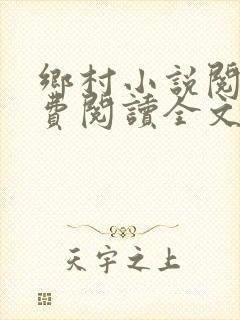 鄉村小說閱
費閱讀全文
天字之上